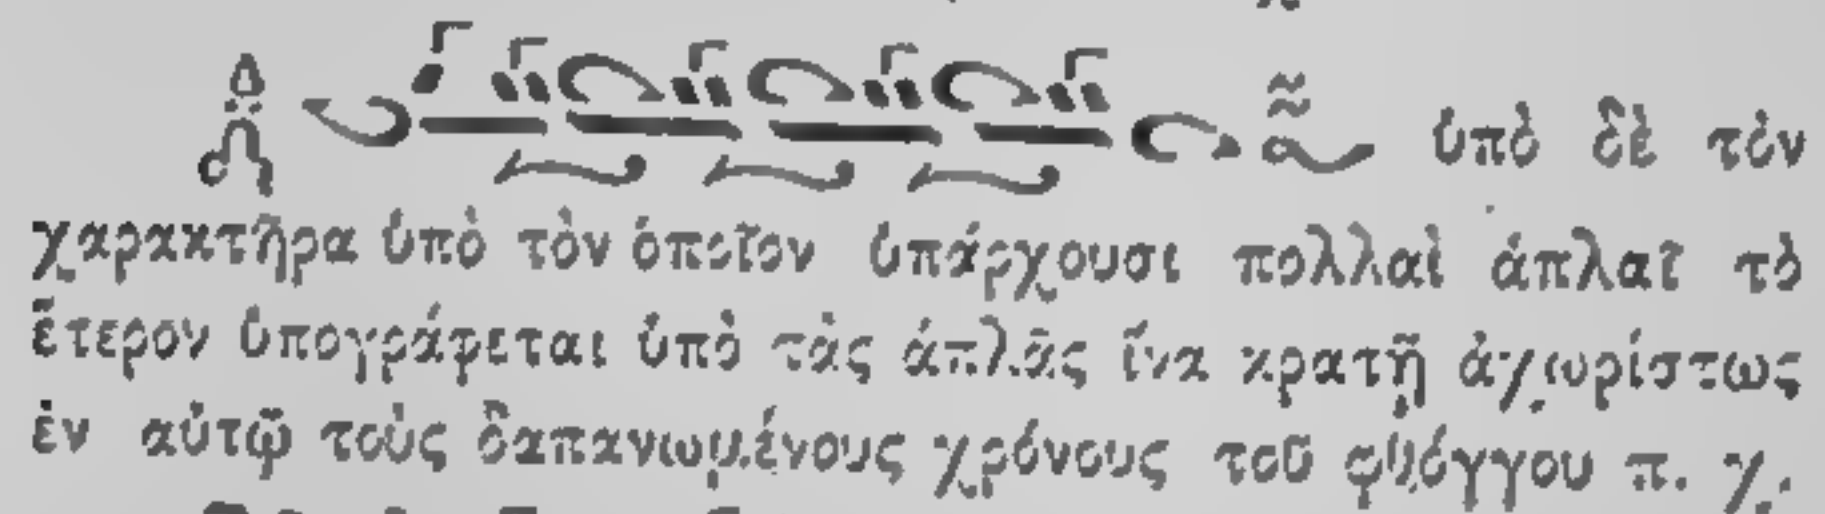 ὑπὸ δὲ τὸν
χαρακτῆρα ὑπὸ τὸν ὁποῖον ὑπάρχουσι πολλαὶ ἁπλαῖ τὸ
ἕτερον ὑπογράφεται ὑπὸ τὰς ἁπλᾶς ἵνα κρατῇ ἀχωρίστως
ἐν αὐτῷ τοὺς δαπανωμένους χρόνους τοῦ φθόγγου π. χ.